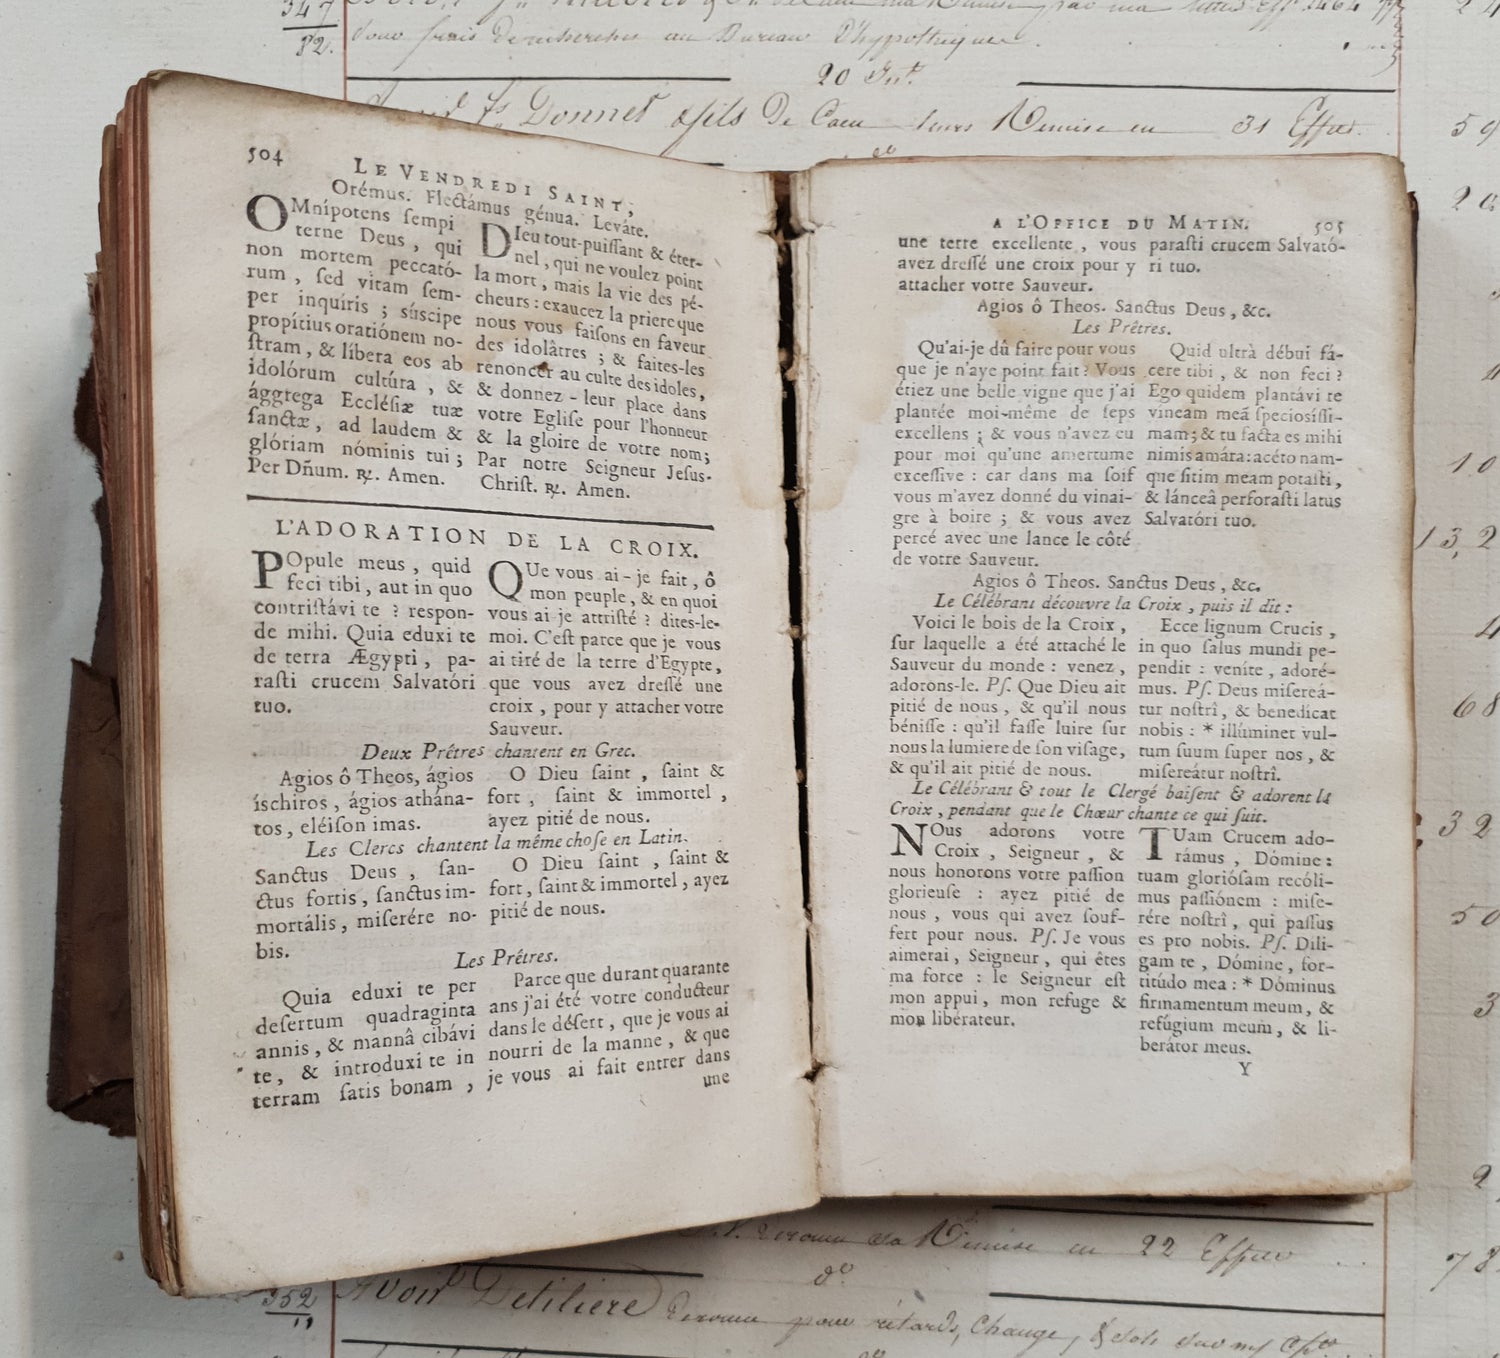 347
82.
pour frais de recherches au Bureau d'hypotheque
20 Int.
Donnet & fils De Caen leurs Remise en 31 Effets
504
LE VENDREDI SAINT,
Orémus. Flectámus génua. Leváte.
OMnípotens ſempi
terne Deus, qui
non mortem peccató-
rum, ſed vitam ſem-
per inquíris; súſcipe
propítius oratiónem no-
ſtram, & líbera eos ab
idolórum cultúra, &
ággrega Eccléſiæ tuæ
ſanctæ, ad laudem &
glóriam nóminis tui;
Per Dñum. ℟. Amen.
DIeu tout-puiſſant & éter-
nel, qui ne voulez point
la mort, mais la vie des pé-
cheurs: exaucez la priere que
nous vous faiſons en faveur
des idolâtres; & faites-les
renoncer au culte des idoles,
& donnez-leur place dans
votre Egliſe pour l'honneur
& la gloire de votre nom;
Par notre Seigneur Jeſus-
Chriſt. ℟. Amen.
L'ADORATION DE LA CROIX.
POpule meus, quid
feci tibi, aut in quo
contriſtávi te? reſpon-
de mihi. Quia eduxi te
de terra Ægypti, pa-
raſti crucem Salvatóri
tuo.
QUe vous ai-je fait, ô
mon peuple, & en quoi
vous ai-je attriſté? dites-le-
moi. C'eſt parce que je vous
ai tiré de la terre d'Egypte,
que vous avez dreſſé une
croix, pour y attacher votre
Sauveur.
Deux Prêtres chantent en Grec.
Agios ô Theos, ágios
íschiros, ágios athána-
tos, eléiſon imas.
O Dieu ſaint, ſaint &
fort, ſaint & immortel,
ayez pitié de nous.
Les Clercs chantent la même choſe en Latin.
Sanctus Deus, ſan-
ctus fortis, ſanctus im-
mortális, miſerére no-
bis.
O Dieu ſaint, ſaint &
fort, ſaint & immortel, ayez
pitié de nous.
Les Prêtres.
Quia eduxi te per
deſertum quadraginta
annis, & mannâ cibávi
te, & introduxi te in
terram ſatis bonam,
Parce que durant quarante
ans j'ai été votre conducteur
dans le déſert, que je vous ai
nourri de la manne, & que
je vous ai fait entrer dans
une
A L'OFFICE DU MATIN. 505
une terre excellente, vous
avez dreſſé une croix pour y
attacher votre Sauveur.
paraſti crucem Salvató-
ri tuo.
Agios ô Theos. Sanctus Deus, &c.
Les Prêtres.
Qu'ai-je dû faire pour vous
que je n'aye point fait? Vous
étiez une belle vigne que j'ai
plantée moi-même de ſeps
excellens; & vous n'avez eu
pour moi qu'une amertume
exceſſive: car dans ma ſoif
vous m'avez donné du vinai-
gre à boire; & vous avez
percé avec une lance le côté
de votre Sauveur.
Quid ultrà débui fá-
cere tibi, & non feci?
Ego quidem plantávi te
vineam meâ ſpecioſíſſi-
mam; & tu facta es mihi
nimis amára: acéto nam-
que ſitim meam potaſti,
& lánceâ perforaſti latus
Salvatóri tuo.
Agios ô Theos. Sanctus Deus, &c.
Le Célébrant découvre la Croix, puis il dit:
Voici le bois de la Croix,
ſur laquelle a été attaché le
Sauveur du monde: venez,
adorons-le. Pſ. Que Dieu ait
pitié de nous, & qu'il nous
béniſſe: qu'il faſſe luire ſur
nous la lumiere de ſon viſage,
& qu'il ait pitié de nous.
Ecce lignum Crucis,
in quo ſalus mundi pe-
pendit: veníte, adoré-
mus. Pſ. Deus miſereá-
tur noſtrî, & benedicat
nobis: * illúminet vul-
tum ſuum ſuper nos, &
miſereátur noſtrî.
Le Célébrant & tout le Clergé baiſent & adorent la
Croix, pendant que le Chœur chante ce qui ſuit.
NOus adorons votre
Croix, Seigneur, &
nous honorons votre paſſion
glorieuſe: ayez pitié de
nous, vous qui avez ſouf-
fert pour nous. Pſ. Je vous
aimerai, Seigneur, qui êtes
ma force: le Seigneur eſt
mon appui, mon refuge &
mon libérateur.
TUam Crucem ado-
rámus, Dómine:
tuam glorióſam recóli-
mus paſſiónem: miſe-
rére noſtrî, qui paſſus
es pro nobis. Pſ. Dili-
gam te, Dómine, for-
titúdo mea: * Dóminus
firmamentum meum, &
refúgium meum, & li-
berátor meus.
Y
Remise en 22 Effets
do.
352
11
Avoir Detiliere
pour retards, Change,